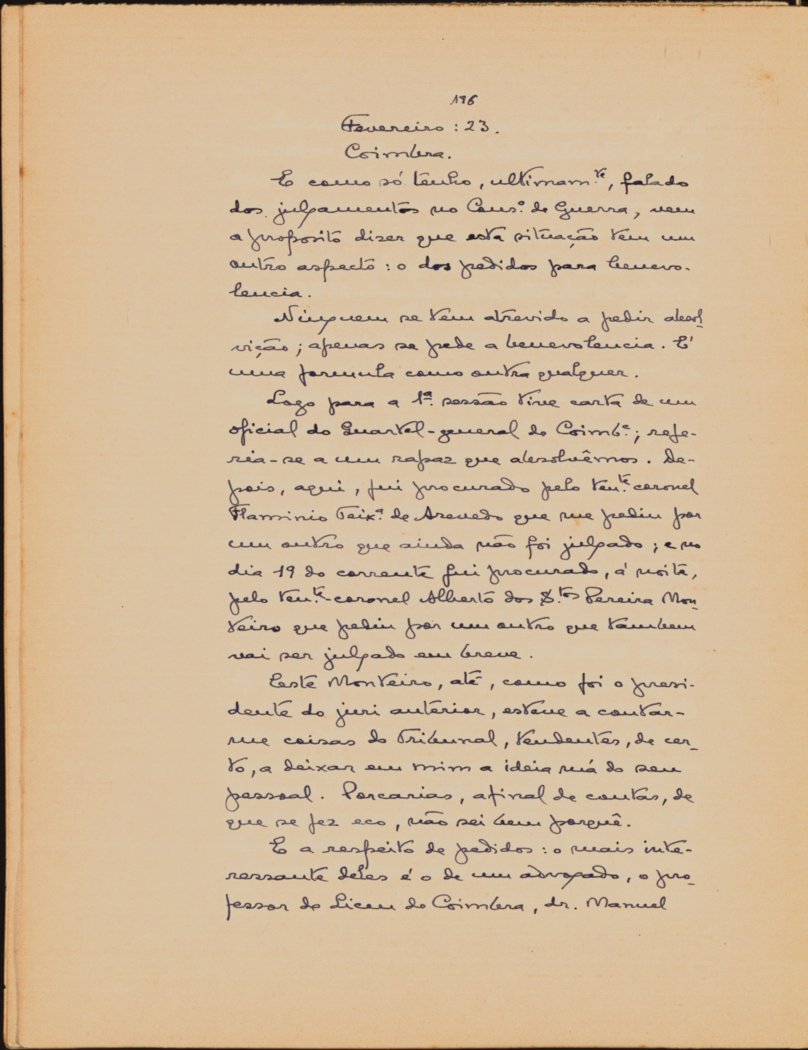 196
Fevereiro : 23.
Coimbra.
E como só tenho, ultimam.te, falado
dos julgamentos no Cons.º de Guerra, vem
a proposito dizer que esta situação tem um
outro aspecto : o dos pedidos para benevo-
lencia.
Ninguem se tem atrevido a pedir absol-
vição ; apenas se pede a benevolencia. É
uma formula como outra qualquer.
Logo para a 1ª. sessão tive carta de um
oficial do Quartel-general de Coimb.ª ; refe-
ria-se a um rapaz que absolvêmos. De-
pois, aqui, fui procurado pelo ten.te coronel
Flaminio Teix.ª de Azevedo que me pediu por
um outro que ainda não foi julgado ; e no
dia 19 do corrente fui procurado, á noite,
pelo ten.te-coronel Alberto dos S.tos Pereira Mon-
teiro que pediu por um outro que tambem
vai ser julgado em breve.
Este Monteiro, até, como foi o presi-
dente do juri anterior, esteve a contar-
me coisas do Tribunal, tendentes, de cer-
to, a deixar em mim a ideia má do seu
pessoal. Porcarias, afinal de contas, de
que se fez eco, não sei bem porquê.
E a respeito de pedidos : o mais inte-
ressante deles é o de um advogado, o pro-
fessor do Liceu de Coimbra, dr. Manuel